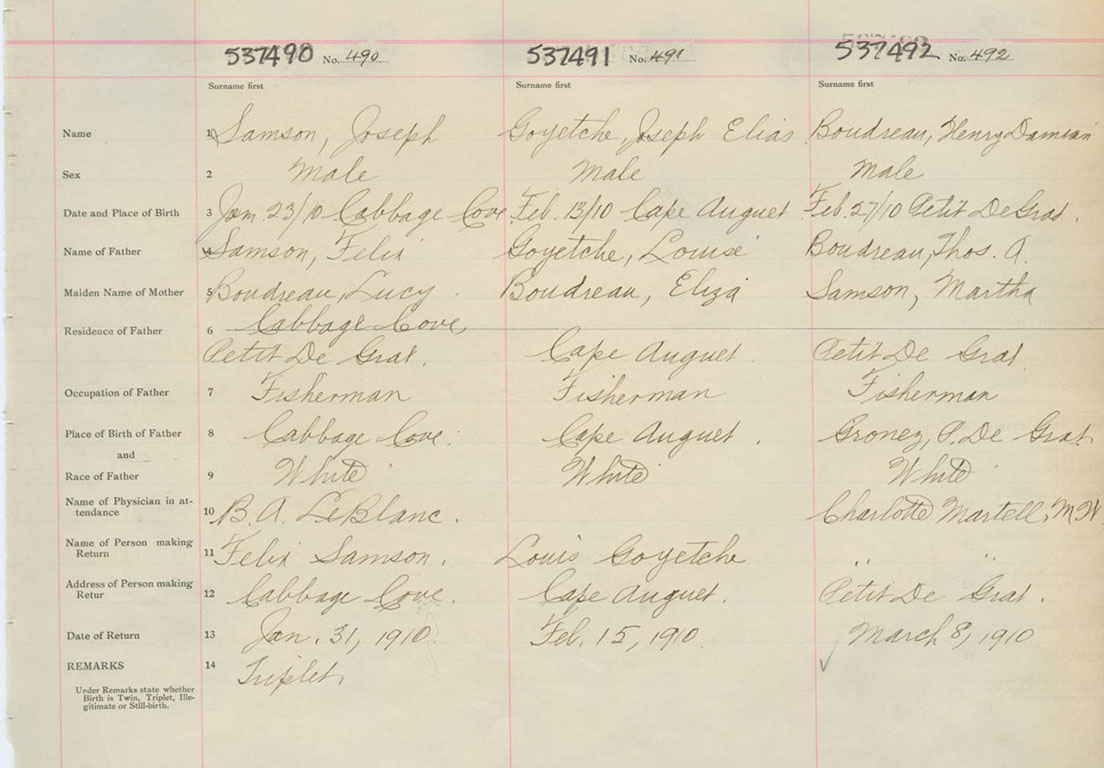 537490 No. 490 537491 No. 491 537492 No. 492
Surname first Surname first Surname first
Name 1 Samson, Joseph Goyetche, Joseph Elias Boudreau, Henry Damian
Sex 2 Male Male Male
Date and Place of Birth 3 Jan. 23/10 Cabbage Cove Feb. 13/10 Cape Auguet Feb. 27/10 Petit De Grat.
Name of Father 4 Samson, Felix Goyetche, Louise Boudreau, Thos. A.
Maiden Name of Mother 5 Boudreau, Lucy. Boudreau, Eliza Samson, Martha
Residence of Father 6 Cabbage Cove,
Petit De Grat. Cape Auguet Petit De Grat
Occupation of Father 7 Fisherman Fisherman Fisherman
Place of Birth of Father 8 Cabbage Cove. Cape Auguet. P. De Grat
and
Race of Father 9 White White White
Name of Physician in at-
tendance 10 B. A. LeBlanc. Charlotte Martell, M.W.
Name of Person making
Return 11 Felix Samson. Louis Goyetche " "
Address of Person making
Retur 12 Cabbage Cove. Cape Auguet. Petit De Grat.
Date of Return 13 Jan. 31, 1910. Feb. 15, 1910. March 8, 1910
REMARKS 14 Triplet
Under Remarks state whether
Birth is Twin, Triplet, Ille-
gitimate or Still-birth.